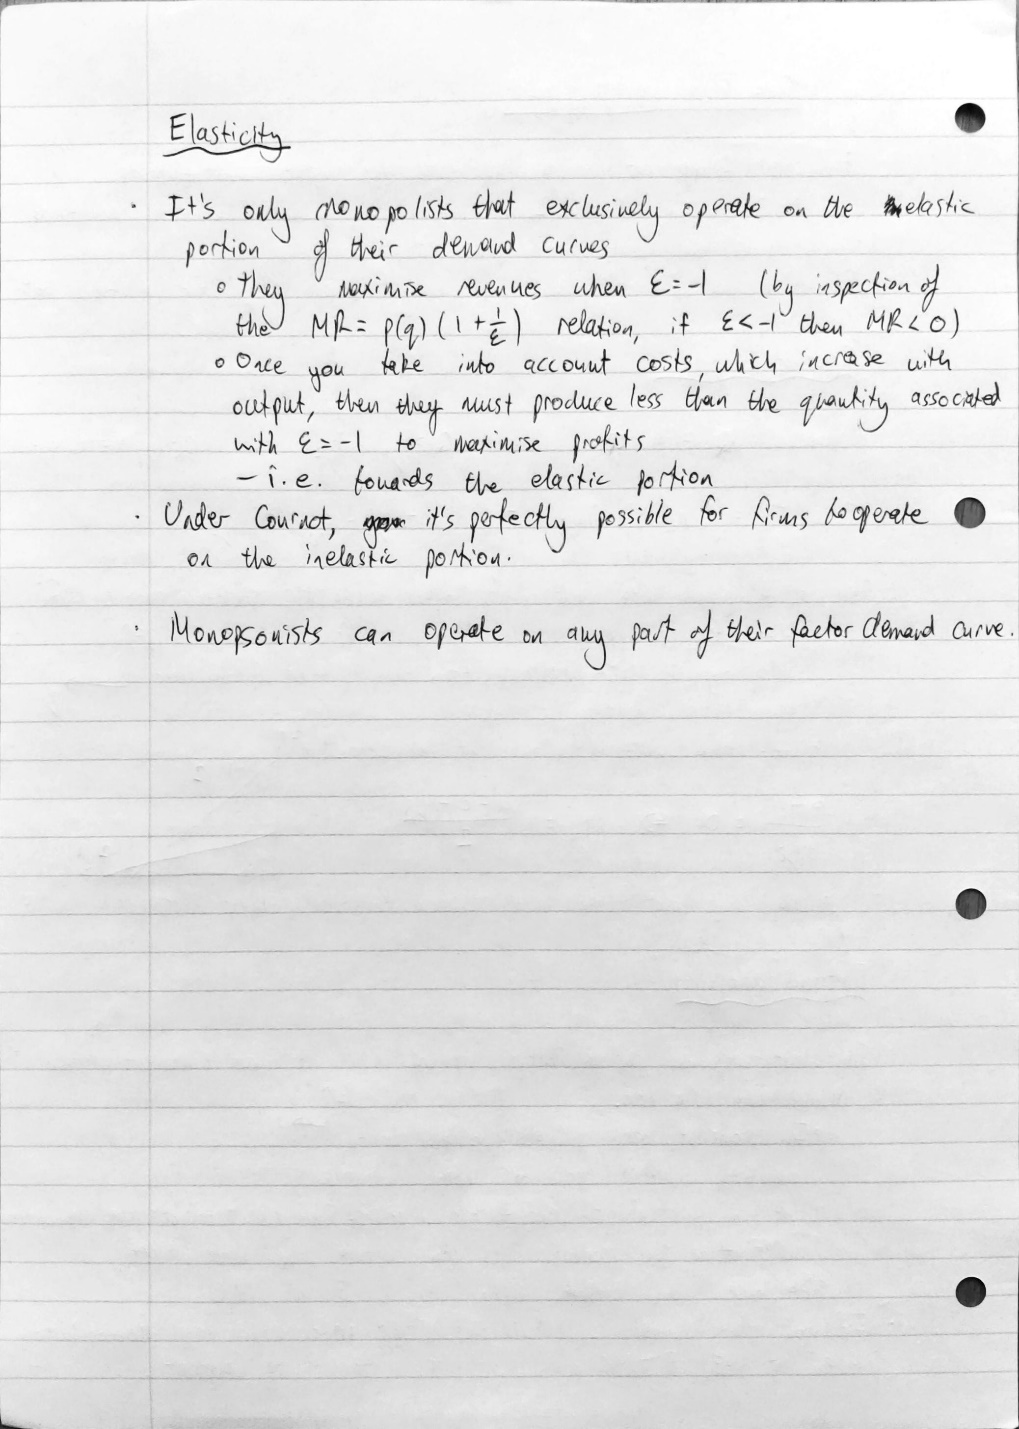 Elasticity
· It's only monopolists that exclusively operate on the elastic
portion of their demand curves
o They maximise revenues when ε=-1 (by inspection of
the MR = p(q) (1 + 1/ε) relation, if ε<-1 then MR<0)
o Once you take into account costs, which increase with
output, then they must produce less than the quantity associated
with ε=-1 to maximise profits
- i.e. towards the elastic portion
· Under Cournot, it's perfectly possible for firms to operate
on the inelastic portion.
· Monopsonists can operate on any part of their factor demand curve.